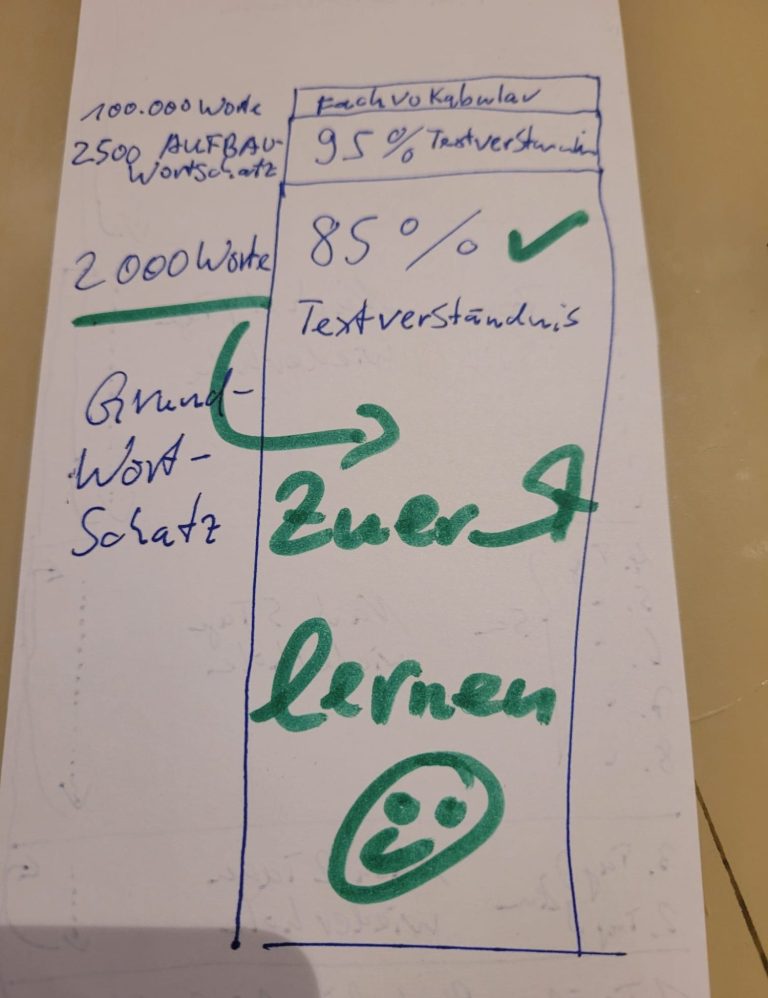 100.000 Worte
Fachvokabular
2500 AUFBAU-
Wortschatz
95% Textverständnis
2000 Worte
85% ✓
Textverständnis
Grund-
Wort-
Schatz
Zuerst
lernen